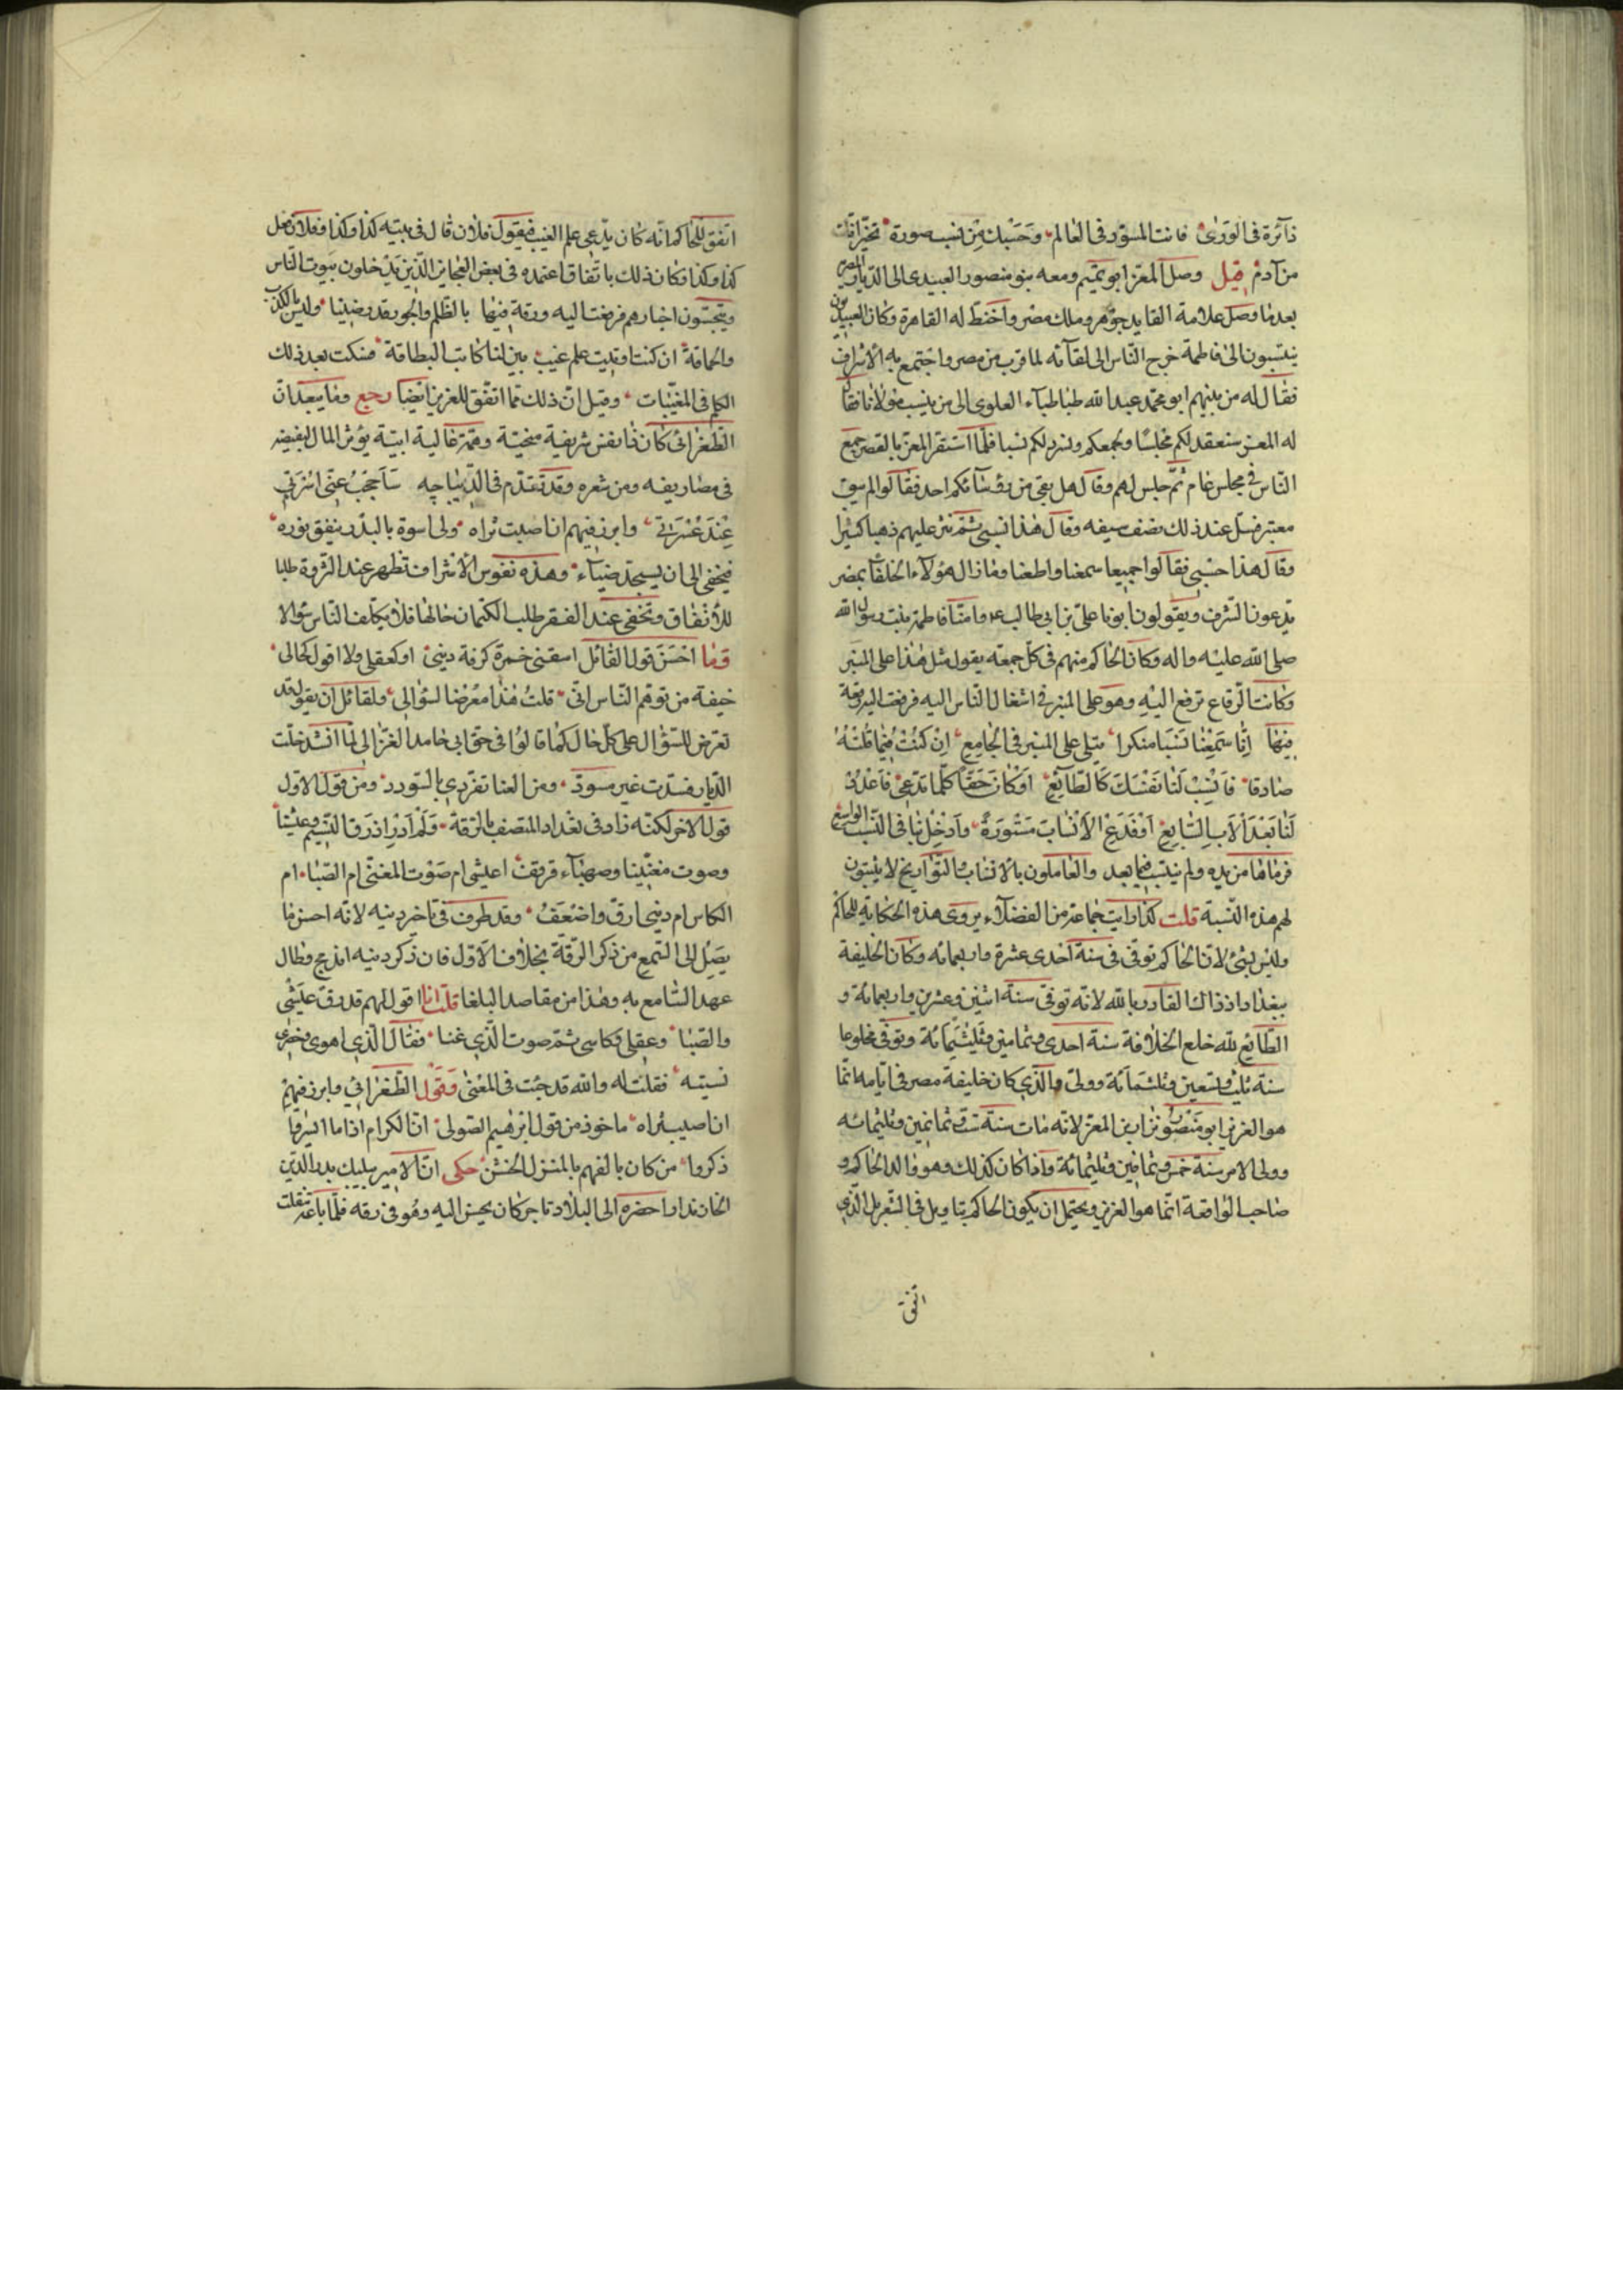 دآئرة فى الورى فانت المسوّد فى العالم وحسبك من نسب صورة تخبّر انّك
من آدم قيل وصل المعز ابو تميم ومعه بنو منصور العبيدى الى الديار المصرية
بعد ما وصل غلامه القايد جوهر وملك مصر واختط له القاهرة وكان العبيديون
ينتسبون الى فاطمة خرج الناس الى لقآئه لما قرب من مصر واجتمع به الاشراف
فقال له من بينهم ابو محمد عبد الله طباطباء العلوى الى من ينسب مولانا فقال
له المعز سنعقد لكم مجلسًا ونجمعكم ونسرد لكم نسبا فلما استقر المعز بالقصر جمع
الناس فى مجلس عام ثم جلس لهم وقال هل بقى من رؤسآئكم احد فقالوا لم يبق
معتبر فسل عند ذلك نصف سيفه وقال هذا نسبى ثم نثر عليهم ذهبا كثيرا
وقال هذا حسبى فقالوا جميعا سمعنا واطعنا وما زال هؤلآء الخلفآ بمصر
يدعون الشرف ويقولون ابونا على بن ابى طالب وامنا فاطمة بنت رسول الله
صلى الله عليه واله وكان الحاكم منهم فى كل جمعة يقول مثل هذا على المنبر
وكانت الرقاع ترفع اليه وهو على المنبر فى اشغال الناس اليه فرفعت اليه رقعة
فيها انّا سمعنا نسبا منكرا يتلى على المنبر فى الجامع ان كنت فيما قلته
صادقا فانسب لنا نفسك كالطائع او كان حقا كلما تدعى فاعدد
لنا بعد الاب السابع او فدع الانساب مستورة وادخل بنا فى النسب الواسع
فرماها من يده ولم ينتسب فيما بعد والعاملون بالانساب والتواريخ لا يثبتون
لهم هذه النسبة قلت كذا رايت جماعة من الفضلآء يروى هذه الحكاية للحاكم
وليس بشئ لان الحاكم توفى فى سنة احدى عشرة واربعمائه وكان الخليفة
ببغداد اذ ذاك القادر بالله لانه توفى سنة اثنين وعشرين واربعمائة و
الطائع لله خلع الخلافة سنة احدى وثمانين وثلثمائة وتوفى مخلوعا
سنة ثلث وتسعين وثلثمائة وولى والذى كان خليفة مصر فى ايامه انما
هو العزيز ابو منصور نزار بن المعز لانه مات سنة ست وثمانين وثلثمائه
وولى الامر سنة خمس وثمانين وثلثمائة واذا كان كذلك وهو والد الحاكم و
صاحب الواقعة انما هو العزيز ويحتمل ان يكون الحاكم بتاويل فى التنزيل الذى
اتفق
اتفق للحاكم انه كان يدعى علم الغيب فيقول فلان قال فى بيته كذا وكذا وفلان فعل
كذا وكذا وكان ذلك باتفاق اعتمده فى بعض العجايز الذين يدخلون بيوت الناس
ويتجسّون اخبارهم فرفعت اليه ورقة فيها بالظلم والجور قد رضينا وليس بالكذب
والحماقة ان كنت اوتيت علم غيب بين لنا كاتب البطاقة فسكت بعد ذلك
الكلم فى المغيبات وقيل ان ذلك مما اتفق للعزيز ايضا رجع وما يبعد ان
الطغرائى كان ذا نفس شريفة سخية وهمة عالية ابية يؤثر المال ليفيضه
فى مصاريفه ومن شعره وقد تقدم فى الديباجه ساحجب عنى اسرتى
عند عسرتى وابرز فيهم ان اصبت ثراه ولى اسوة بالبدر ينفق نوره
فيخفى الى ان يستجد ضيآء وهذه نفوس الاشراف تظهر عند الثروة طلبا
للانفاق وتخفى عند الفقر طلب الكتمان حالها فلا يكلف الناس سؤالا
وما احسن قول القائل اسقنى خمرة كرقة دينى او كعقلى ولا اقول كحالى
خيفة من توهم الناس انى قلت هذا معرّضا لسؤالى ولقائل ان يقول قد
تعرض للسؤال على كل حال كما قالوا فى حق ابى حامد الغزالى لما انشد خلت
الديار فسدت غير مسوّد ومن العنا تفرّدى بالسودد ومن قول الاول
قول الاخر لكنه زاد فى بغداد المتصف بالرقة ولم ادر اذ رق النسيم وعيشنا
وصوت مغنينا وصهبآء قرقف اعيشى ام صوت المغنى ام الصبا ام
الكاس ام دينى ارق واضعف وقد طرف فى تاخر دينه لانه احسن ما
يصل الى السمع من ذكر الرقة بخلاف الاول فان ذكر دينه اندمج وطال
عهد السامع به وهذا من مقاصد البلغا قلت انا اقول لهم قد رق عيشى
والصبا وعقلى وكاسى ثم صوت الذى غنا فقال الذى اهوى وخصرى
نسيته فقلت له والله قد جئت فى المعنى وقول الطغرائى وابرز فيهم
ان اصبت ثراه ماخوذ من قول ابرهيم الصولى ان الكرام اذا ما ايسروا
ذكروا من كان يالفهم بالمنزل الخشن حكى ان الامير بيليك بدر الدين
الخازندار احضره الى البلاد تاجر كان يحسن اليه وهو فى رقه فلما باعه تنقلت